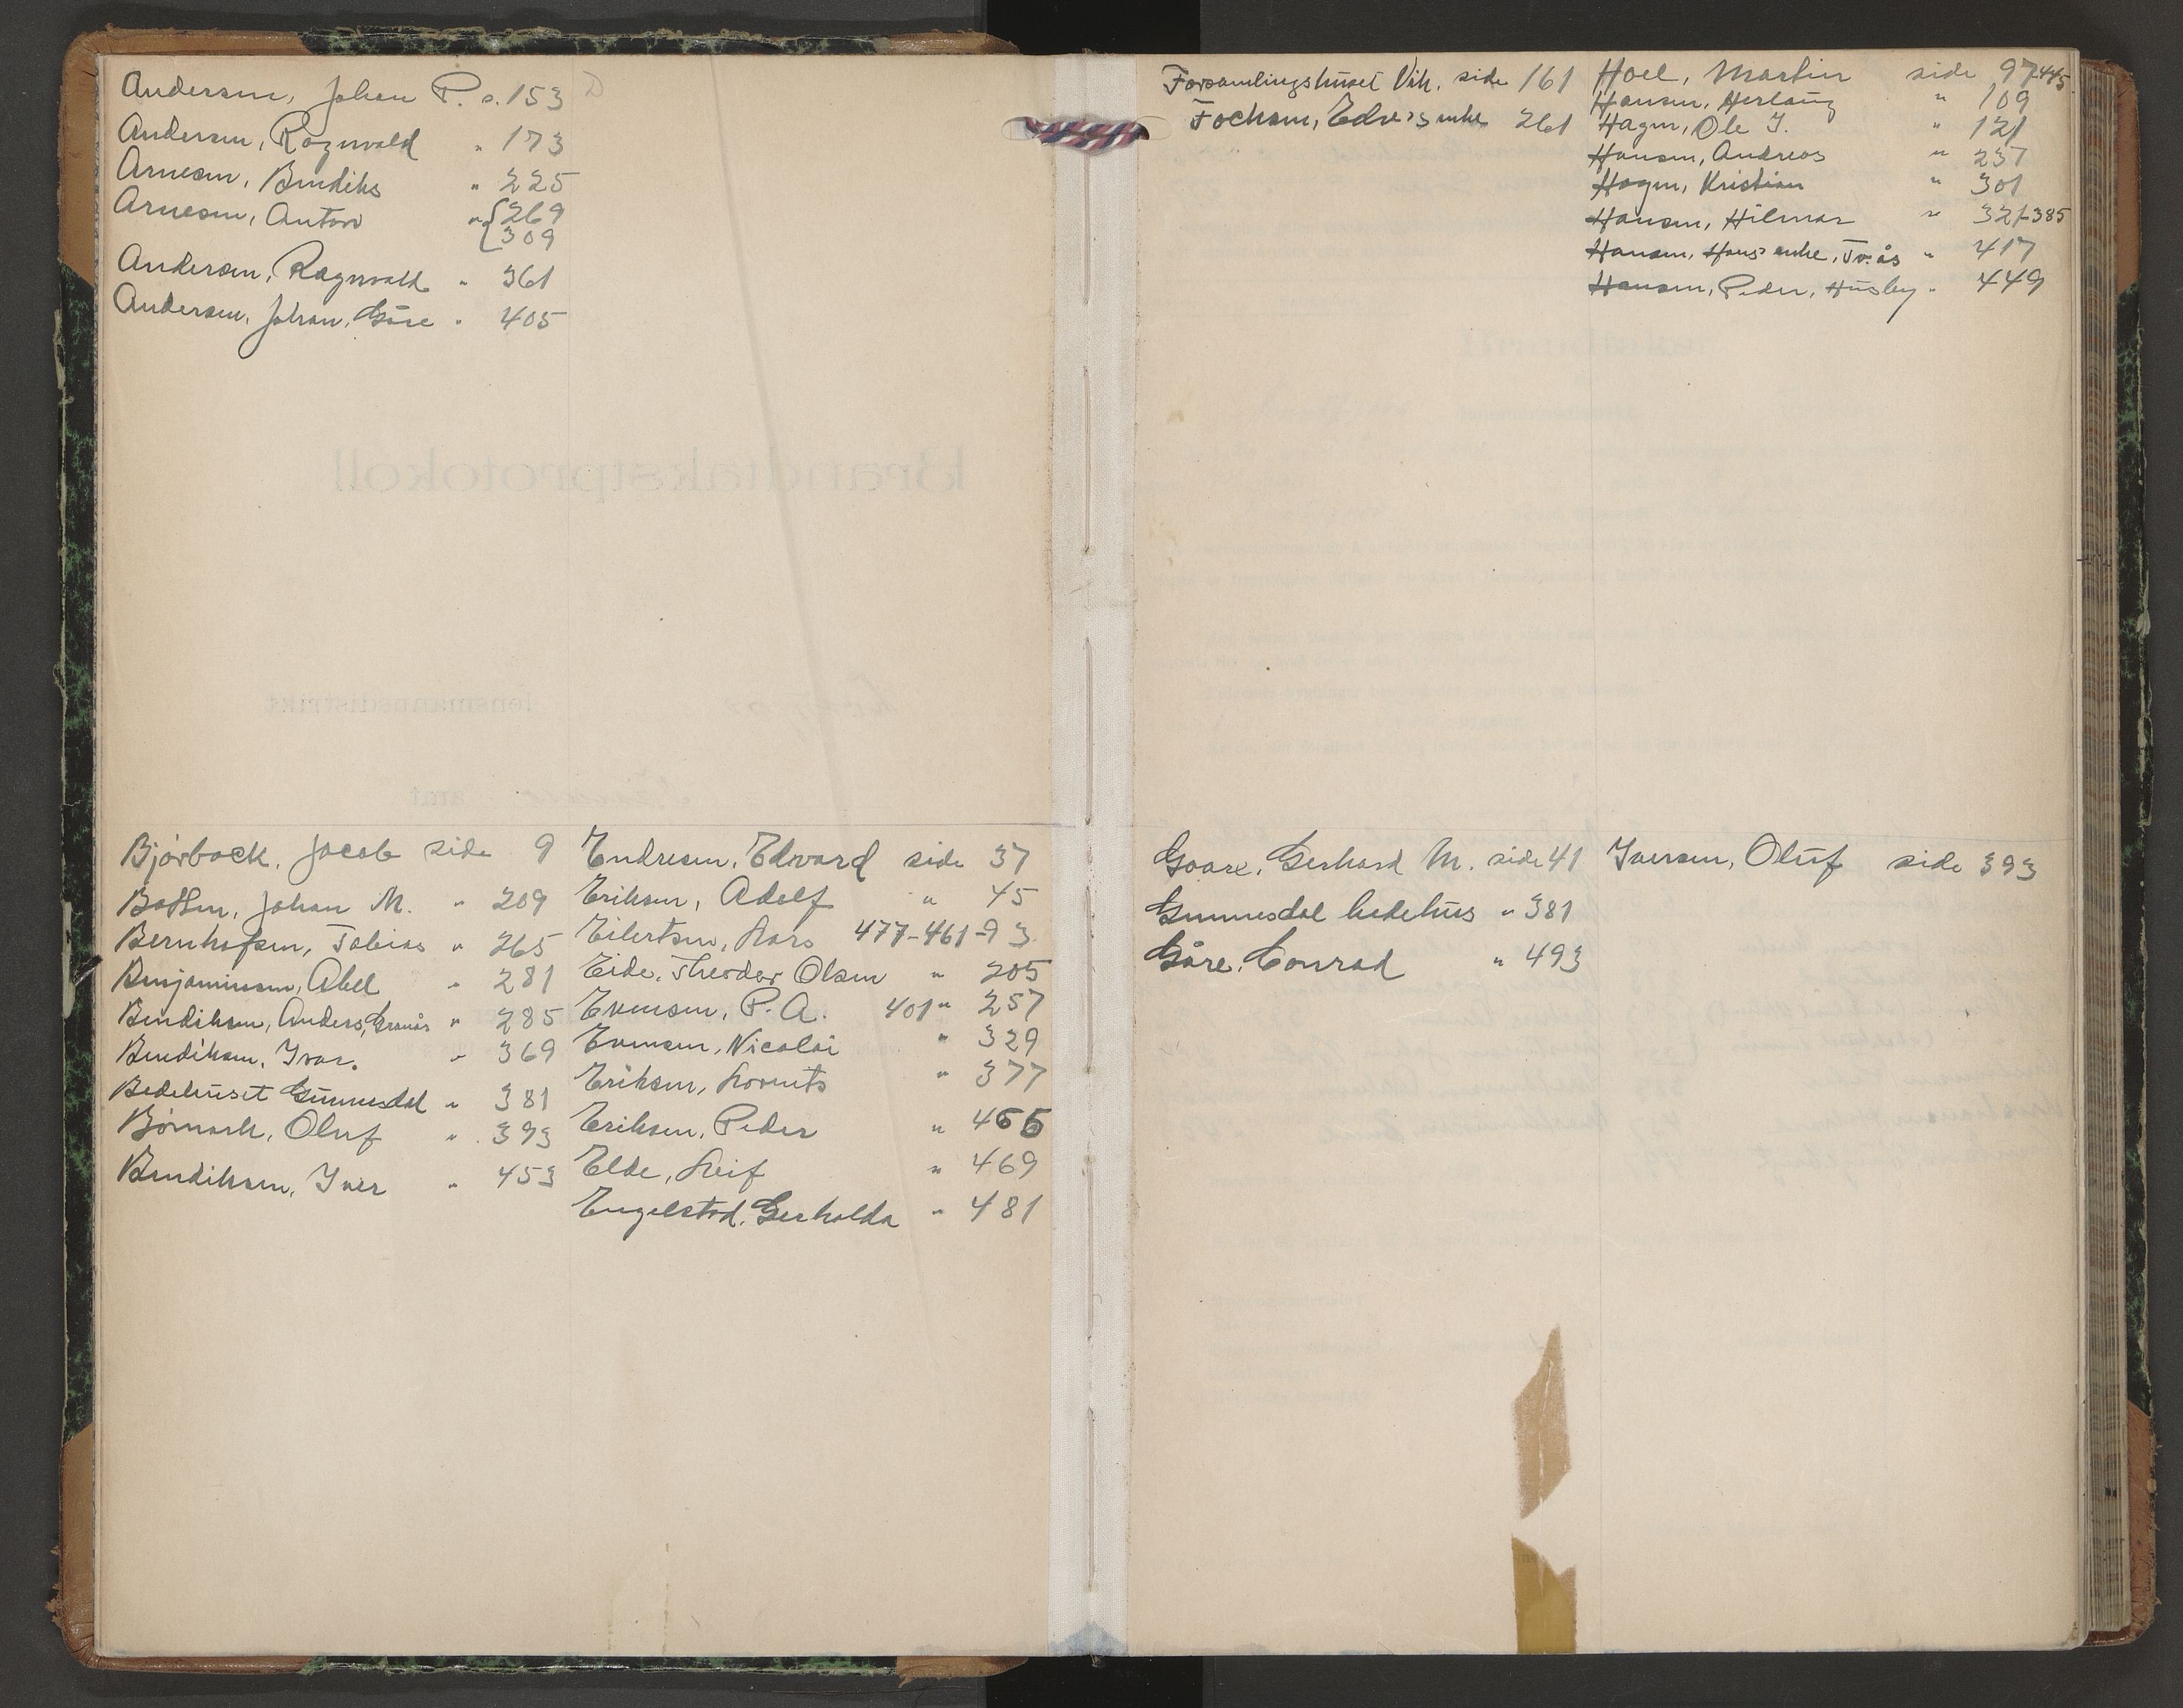 Andersen, Johan P. s. 153 D
Andersen, Ragnvald " 173
Arnesen, Bendiks " 225
Arnesen, Anton " { 269
309
Andersen, Ragnvald " 361
Andersen, Johan, Gåre " 405
Bjørbæck, Jacob side 9
Johan M. " 209
Bernhofsen, Tobias " 265
Benjaminsen, Abel " 281
Bendiksen, Anders, Granås " 285
Bendiksen, Ivar. " 369
Bedehuset Gunnesdal " 381
Oluf " 393
Bendiksen, Iver " 453
Endresen, Edvard side 37
Eriksen, Adolf " 45
Eilertsen, Lars 477-461-93
Eide, Theodor Olsen " 205
Evensen, P. A. 401 " 257
Evensen, Nicolai " 329
Eriksen, Lorents " 377
Eriksen, Peder " 465
Elde, Leif " 469
Engelstad, Gerhalda " 481
Forsamlingshuset Vik. side 161
Fochsen, Edv's enke 261
Hoel, Martin side 97-445
Hansen, Herlaug " 109
Hagen, Ole J. " 121
Hansen, Andreas " 237
Hagen, Kristian " 301
Hansen, Hilmar " 321-385
Hansen, Hans' enke, Tv.ås " 417
Hansen, Peder, Husby " 449
Goare, Gerhard M. side 41
Gunnesdal bedehus " 381
Gåre, Conrad " 493
Iversen, Oluf side 393
Brandtakstprotokoll
lensmannsdistrikt
amt